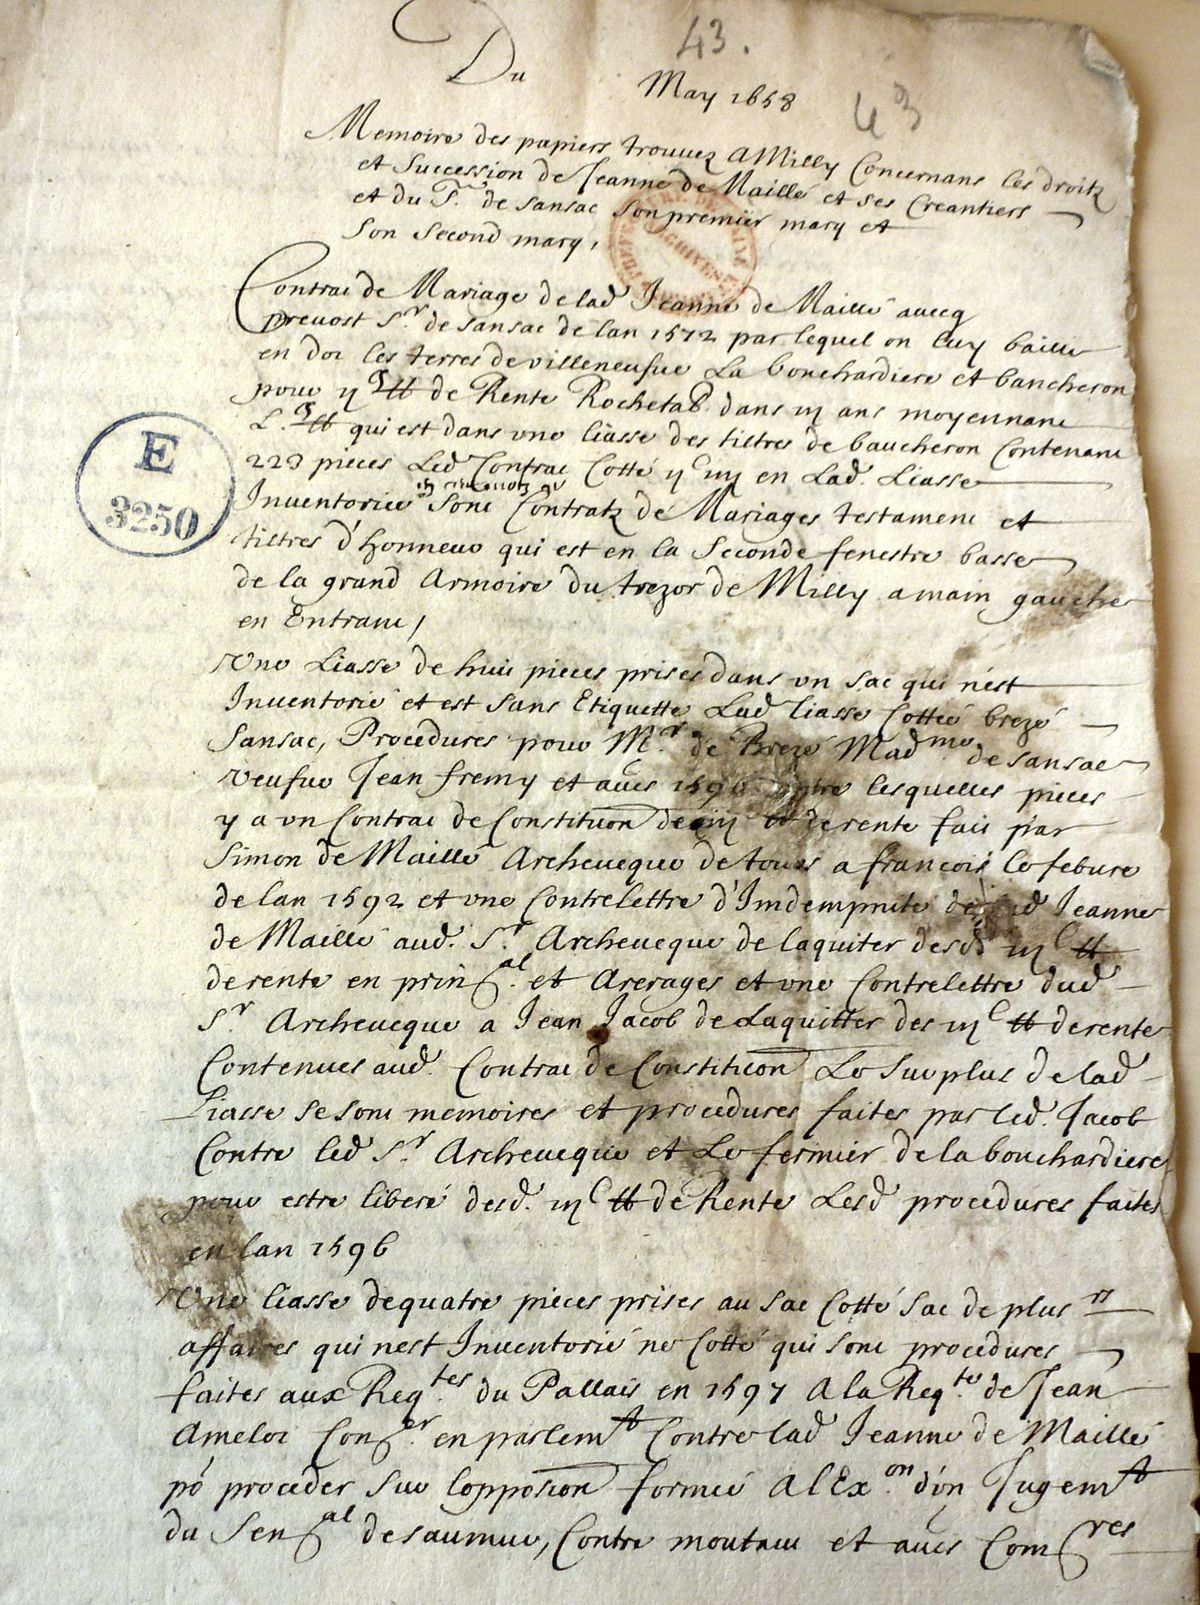 43.
Du May 1658
43
Memoire des papiers trouvez a Milly Concernans les droitz
et Succession de Jeanne de Maillé et ses Creantiers
et du Sr. de Sansac Son premier mary et
Son Second mary,
Contrac de Mariage de lad Jeanne de Maillé avecq
prevost Sr. de Sansac de lan 1572 par lequel on luy baille
en dot les terres de villeneufve La bouchardiere et bancheron
pour de Rente Rachetab. dans iij ans moyennant
qui est dans une liasse des tiltres de baucheron Contenant
223 pieces Led Contrac Cotté en Lad. Liasse
Inventoriee Sont Contratz de Mariages testament et
tiltres d'honneur qui est en la Seconde fenestre basse
de la grand Armoire du trezor de Milly a main gauche
en Entrant,
Une Liasse de huit pieces prises dans un Sac qui n'est
Inventorié et est Sans Etiquette Lad liasse Cottee brezé
Sansac, Procedures pour Mr. de Brezé Madme. de Sansac
veufve Jean fremy et aues 1596 entre lesquelles pieces
y a un Contrac de Constituon de rente fait par
Simon de Maillé Archeveque de tours a francois lefebure
de lan 1592 et une Contrelettre d'Indempnité de lad Jeanne
de Maillé aud. Sr. Archeveque de laquiter desd iijc ₶
de rente en prinal. et Arerages et une Contrelettre dud
Sr. Archeveque a Jean Jacob de Laquitter des iijc ₶ de rente
Contenues aud. Contrac de Constituon Le Surplus de lad
Liasse se sont memoires et procedures faites par led. Jacob
Contre led Sr. Archeveque et Le fermier de la bouchardiere
pour estre liberé desd. iijc ₶ de Rente Lesd procedures faites
en lan 1596
Une liasse de quatre pieces prises au Sac Cotté Sac de plus rs
affaires qui nest Inventorié ne Cotté qui sont procedures
faites aux Reqtes. du Pallais en 1597 A la Reqte. de Jean
Amelot Conser. en parlemt Contre lad Jeanne de Maillé
po proceder Sur lopposion formée A l Exon. d'un Jugemt
du Senal de Saumur, Contre moutau et aues Comres
E
3250